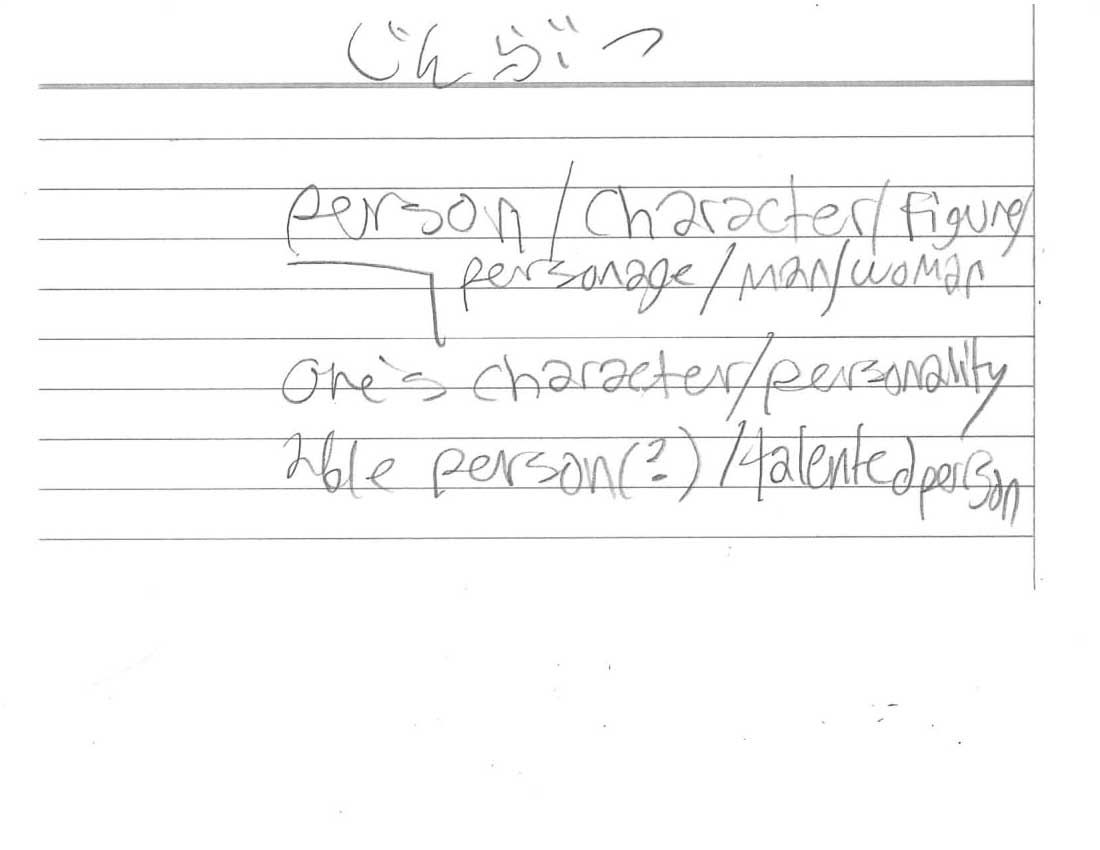 じんぶつ
person/character/figure/
personage/man/woman
One's character/personality
able person(?)/talented person